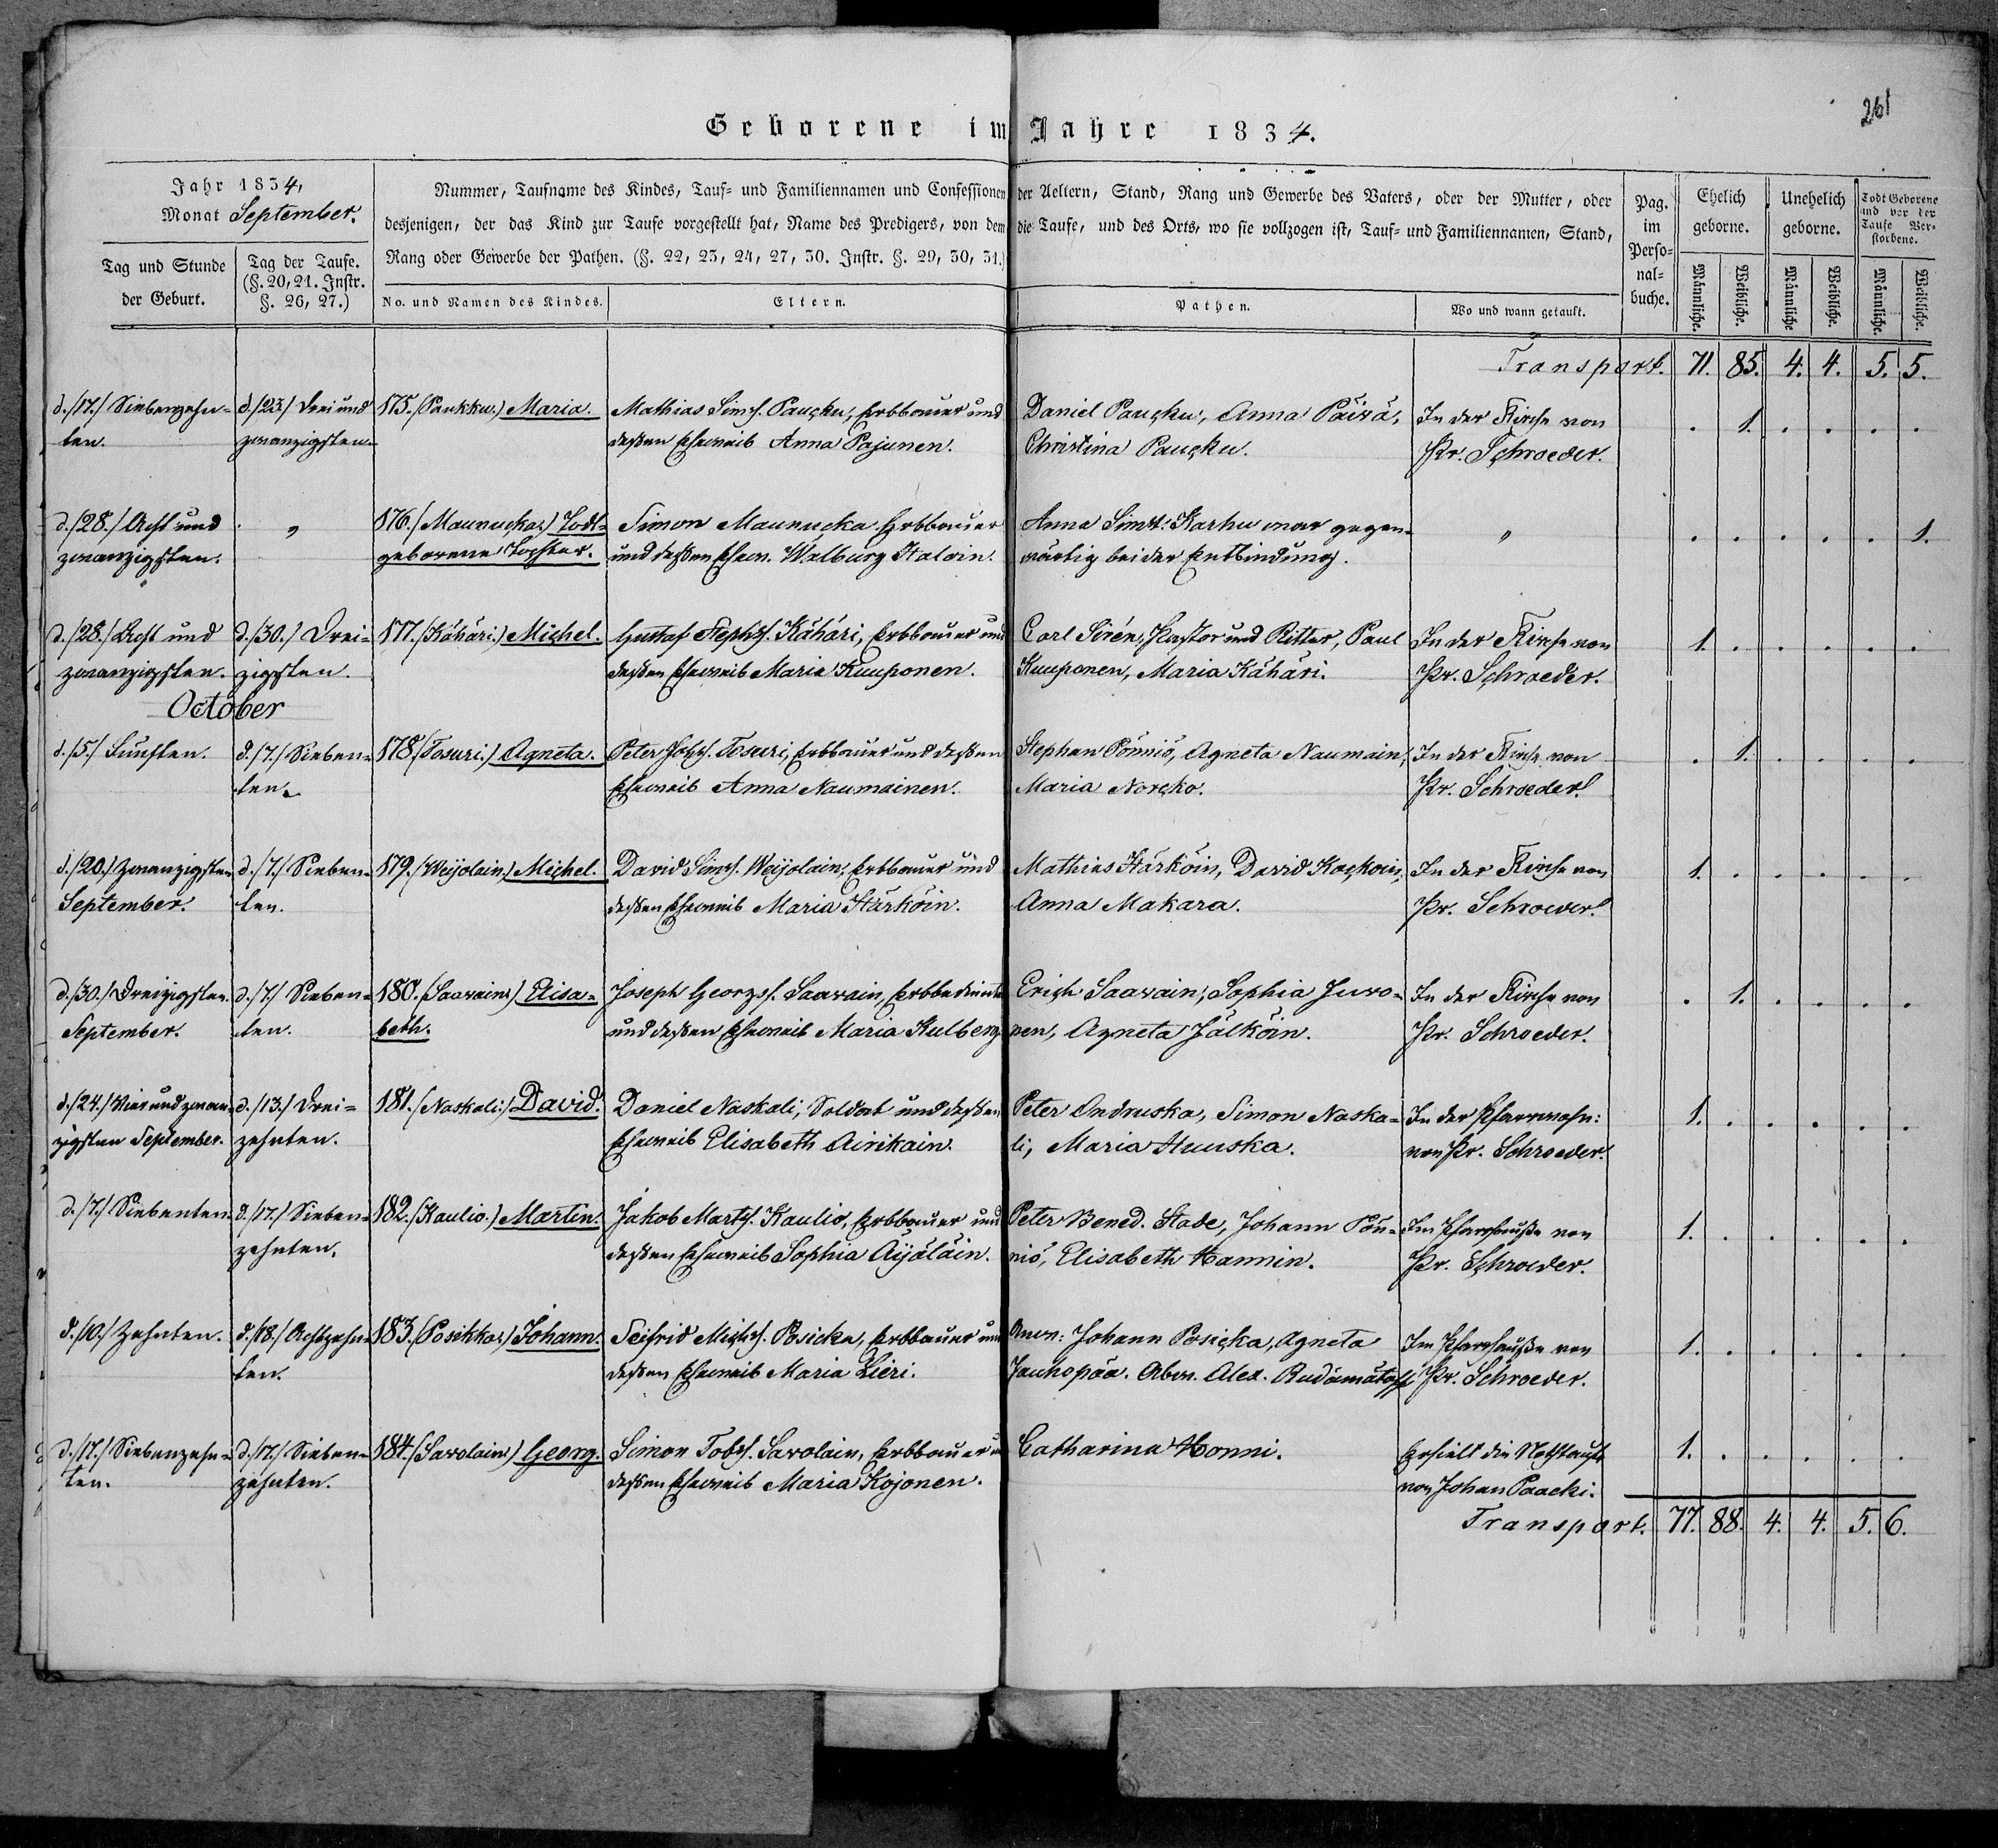 261
Geborene im Jahre 1834.
Jahr 1834,
Monat September.
Nummer, Taufname des Kindes, Tauf- und Familiennamen und Confessionen der Aeltern, Stand, Rang und Gewerbe des Vaters, oder der Mutter, oder
desjenigen, der das Kind zur Taufe vorgestellt hat, Name des Predigers, von dem die Taufe, und des Orts, wo sie vollzogen ist, Tauf- und Familiennamen, Stand,
Rang oder Gewerbe der Pathen. (§. 22, 23, 24, 27, 30. Instr. §. 29, 30, 31.)
Tag und Stunde
der Geburt.
Tag der Taufe.
(§. 20, 21. Instr.
§. 26, 27.)
No. und Namen des Kindes.
Eltern.
Pathen.
Wo und wann getauft.
Pag.
im
Perso-
nal-
buche.
Ehelich
geborne.
Unehelich
geborne.
Todt Geborene
und vor der
Taufe Ver-
storbene.
Männliche.
Weibliche.
Männliche
Weibliche.
Männliche.
Weibliche.
Transport. 71. 85. 4. 4. 5. 5.
d./17./ Siebenzehn-
ten.
d./23./ Drei und
zwanzigsten.
175. (Paukku.) Maria.
Mathias Sims. Paucku, Erbbauer und
deßen Eheweib Anna Pajunen.
Daniel Paucku, Anna Päivä,
Christina Paucku.
In der Kirche von
Pr. Schroeder.
. 1. . . . .
d./28./ Acht und
zwanzigsten.
"
176. (Maunucka.) Todt-
geborene Tochter.
Simon Maunucka Erbbauer
und deßen Ehew. Walburg Italain.
Anna Simst. Karhu war gegen-
wärtig bei der Entbindung.
"
. . . . . 1.
d./28./ Acht und
zwanzigsten.
d./30./ Drei-
zigsten.
177. (Kähäri.) Michel.
Gustaf Stephs. Kähäri, Erbbauer und
deßen Eheweib Maria Kuuponen.
Carl Sirén, Pastor und Ritter, Paul
Kuuponen, Maria Kähäri.
In der Kirche von
Pr. Schroeder.
1. . . . . .
October
d./5./ Fünften.
d./7./ Sieben-
ten.
178. (Tosuri.) Agneta.
Peter Johs. Tosuri, Erbbauer und deßen
Eheweib Anna Naumainen.
Stephan Pönniö, Agneta Naumain,
Maria Norcko.
In der Kirche von
Pr. Schroeder.
. 1. . . . .
d./20./ Zwanzigsten
September.
d./7./ Sieben-
ten.
179. (Weijolain.) Michel.
David Sims. Weijolain, Erbbauer und
deßen Eheweib Maria Härköin.
Mathias Härköin, David Kockoin,
Anna Makara.
In der Kirche von
Pr. Schroeder.
1. . . . . .
d./30./ Dreizigsten
September.
d./7./ Sieben-
ten.
180. (Saawain.) Elisa-
beth.
Joseph Georgs. Saawain, Erbbedienter
und deßen Eheweib Maria Kulberg.
Erich Saawain, Sophia Juvo-
nen, Agneta Jälköin.
In der Kirche von
Pr. Schroeder.
. 1. . . . .
d./24./ Vier und zwan-
zigsten September.
d./13./ Drei-
zehnten.
181. (Naskali.) David.
Daniel Naskali, Soldat und deßen
Eheweib Elisabeth Airikain.
Peter Andruska, Simon Naska-
li, Maria Huuska.
In der Pfarrwohn:
von Pr. Schroeder.
1. . . . . .
d./7./ Siebenten.
d./17./ Sieben-
zehnten.
182. (Kaulio.) Martin.
Jakob Marts. Kaulio, Erbbauer und
deßen Eheweib Sophia Äijäläin.
Peter Bened. Stade, Johann Pön-
niö, Elisabeth Hannin.
Im Pfarrhauße von
Pr. Schroeder.
1. . . . . .
d./10./ Zehnten.
d./18./ Achtzehn-
ten.
183. (Posikka.) Johann.
Seifrid Michs. Posicka, Erbbauer und
deßen Eheweib Maria Lieri.
Anw: Johann Posicka, Agneta
Jauhopää. Abw. Alex.
Im Pfarrhauße von
Pr. Schroeder.
1. . . . . .
d./17./ Siebenzehn-
ten.
d./17./ Sieben-
zehnten.
184. (Savolain.) Georg.
Simon Tobs. Savolain, Erbbauer und
deßen Eheweib Maria Kojonen.
Catharina Honni.
Erhielt die Nothtaufe
von Johan Paacki.
1. . . . . .
Transport. 77. 88. 4. 4. 5. 6.